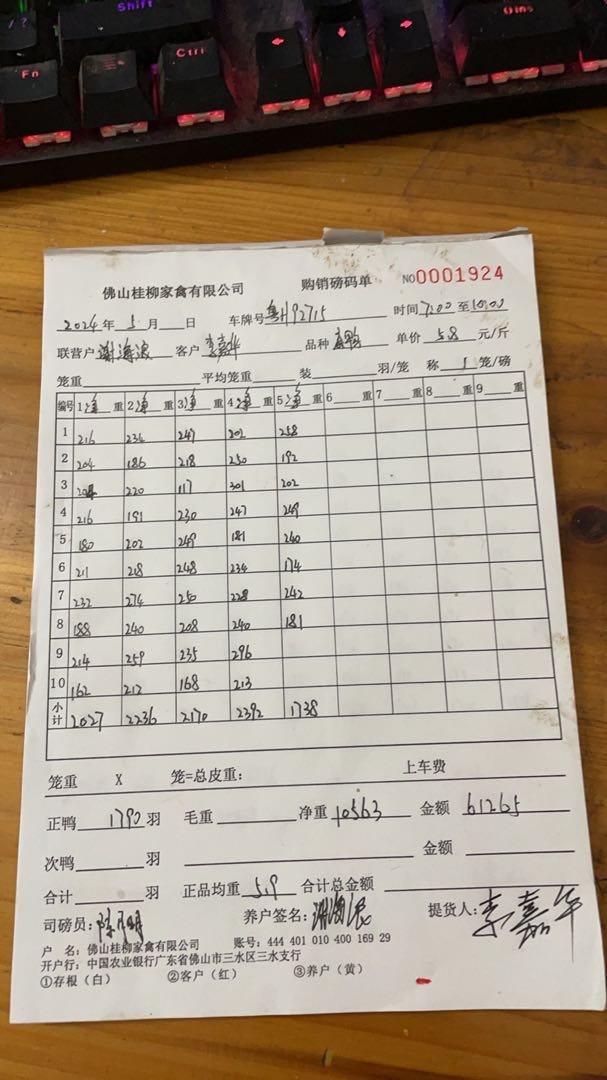 Shift
Fn
Ctrl
Ins
佛山桂柳家禽有限公司 购销磅码单 NO0001924
2024年5月 日 车牌号粤H92715 时间7:00至10:00
联营户谢海浪 客户李嘉华 品种 单价5.8元/斤
笼重 平均笼重 装 羽/笼 称1笼/磅
编号 1净重 2净重 3净重 4净重 5净重 6 重 7 重 8 重 9 重
1 216 236 247 202 258
2 204 186 218 250 192
3 204 220 117 301 202
4 216 191 230 247 249
5 180 202 249 181 240
6 211 218 248 234 174
7 232 274 250 228 242
8 188 240 208 240 181
9 214 259 235 296
10 162 212 168 213
小计 2027 2236 2170 2392 1738
笼重 X 笼=总皮重: 上车费
正鸭1790羽 毛重 净重10563 金额61265
次鸭 羽 金额
合计 羽 正品均重5.9 合计总金额
司磅员: 养户签名: 谢海浪 提货人: 李嘉华
户 名: 佛山桂柳家禽有限公司 账号: 444 401 010 400 169 29
开户行: 中国农业银行广东省佛山市三水区三水支行
①存根(白) ②客户(红) ③养户(黄)